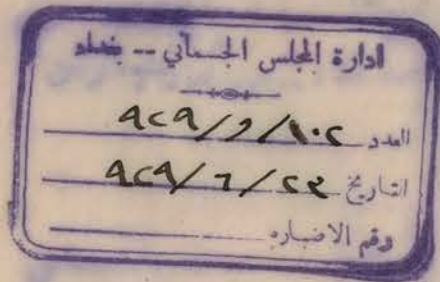 ادارة المجلس الجسماني -- بغداد
العدد ٩٢٩/و/١٠٢
التاريخ ٩٢٩/٦/٢٣
رقم الاضباره